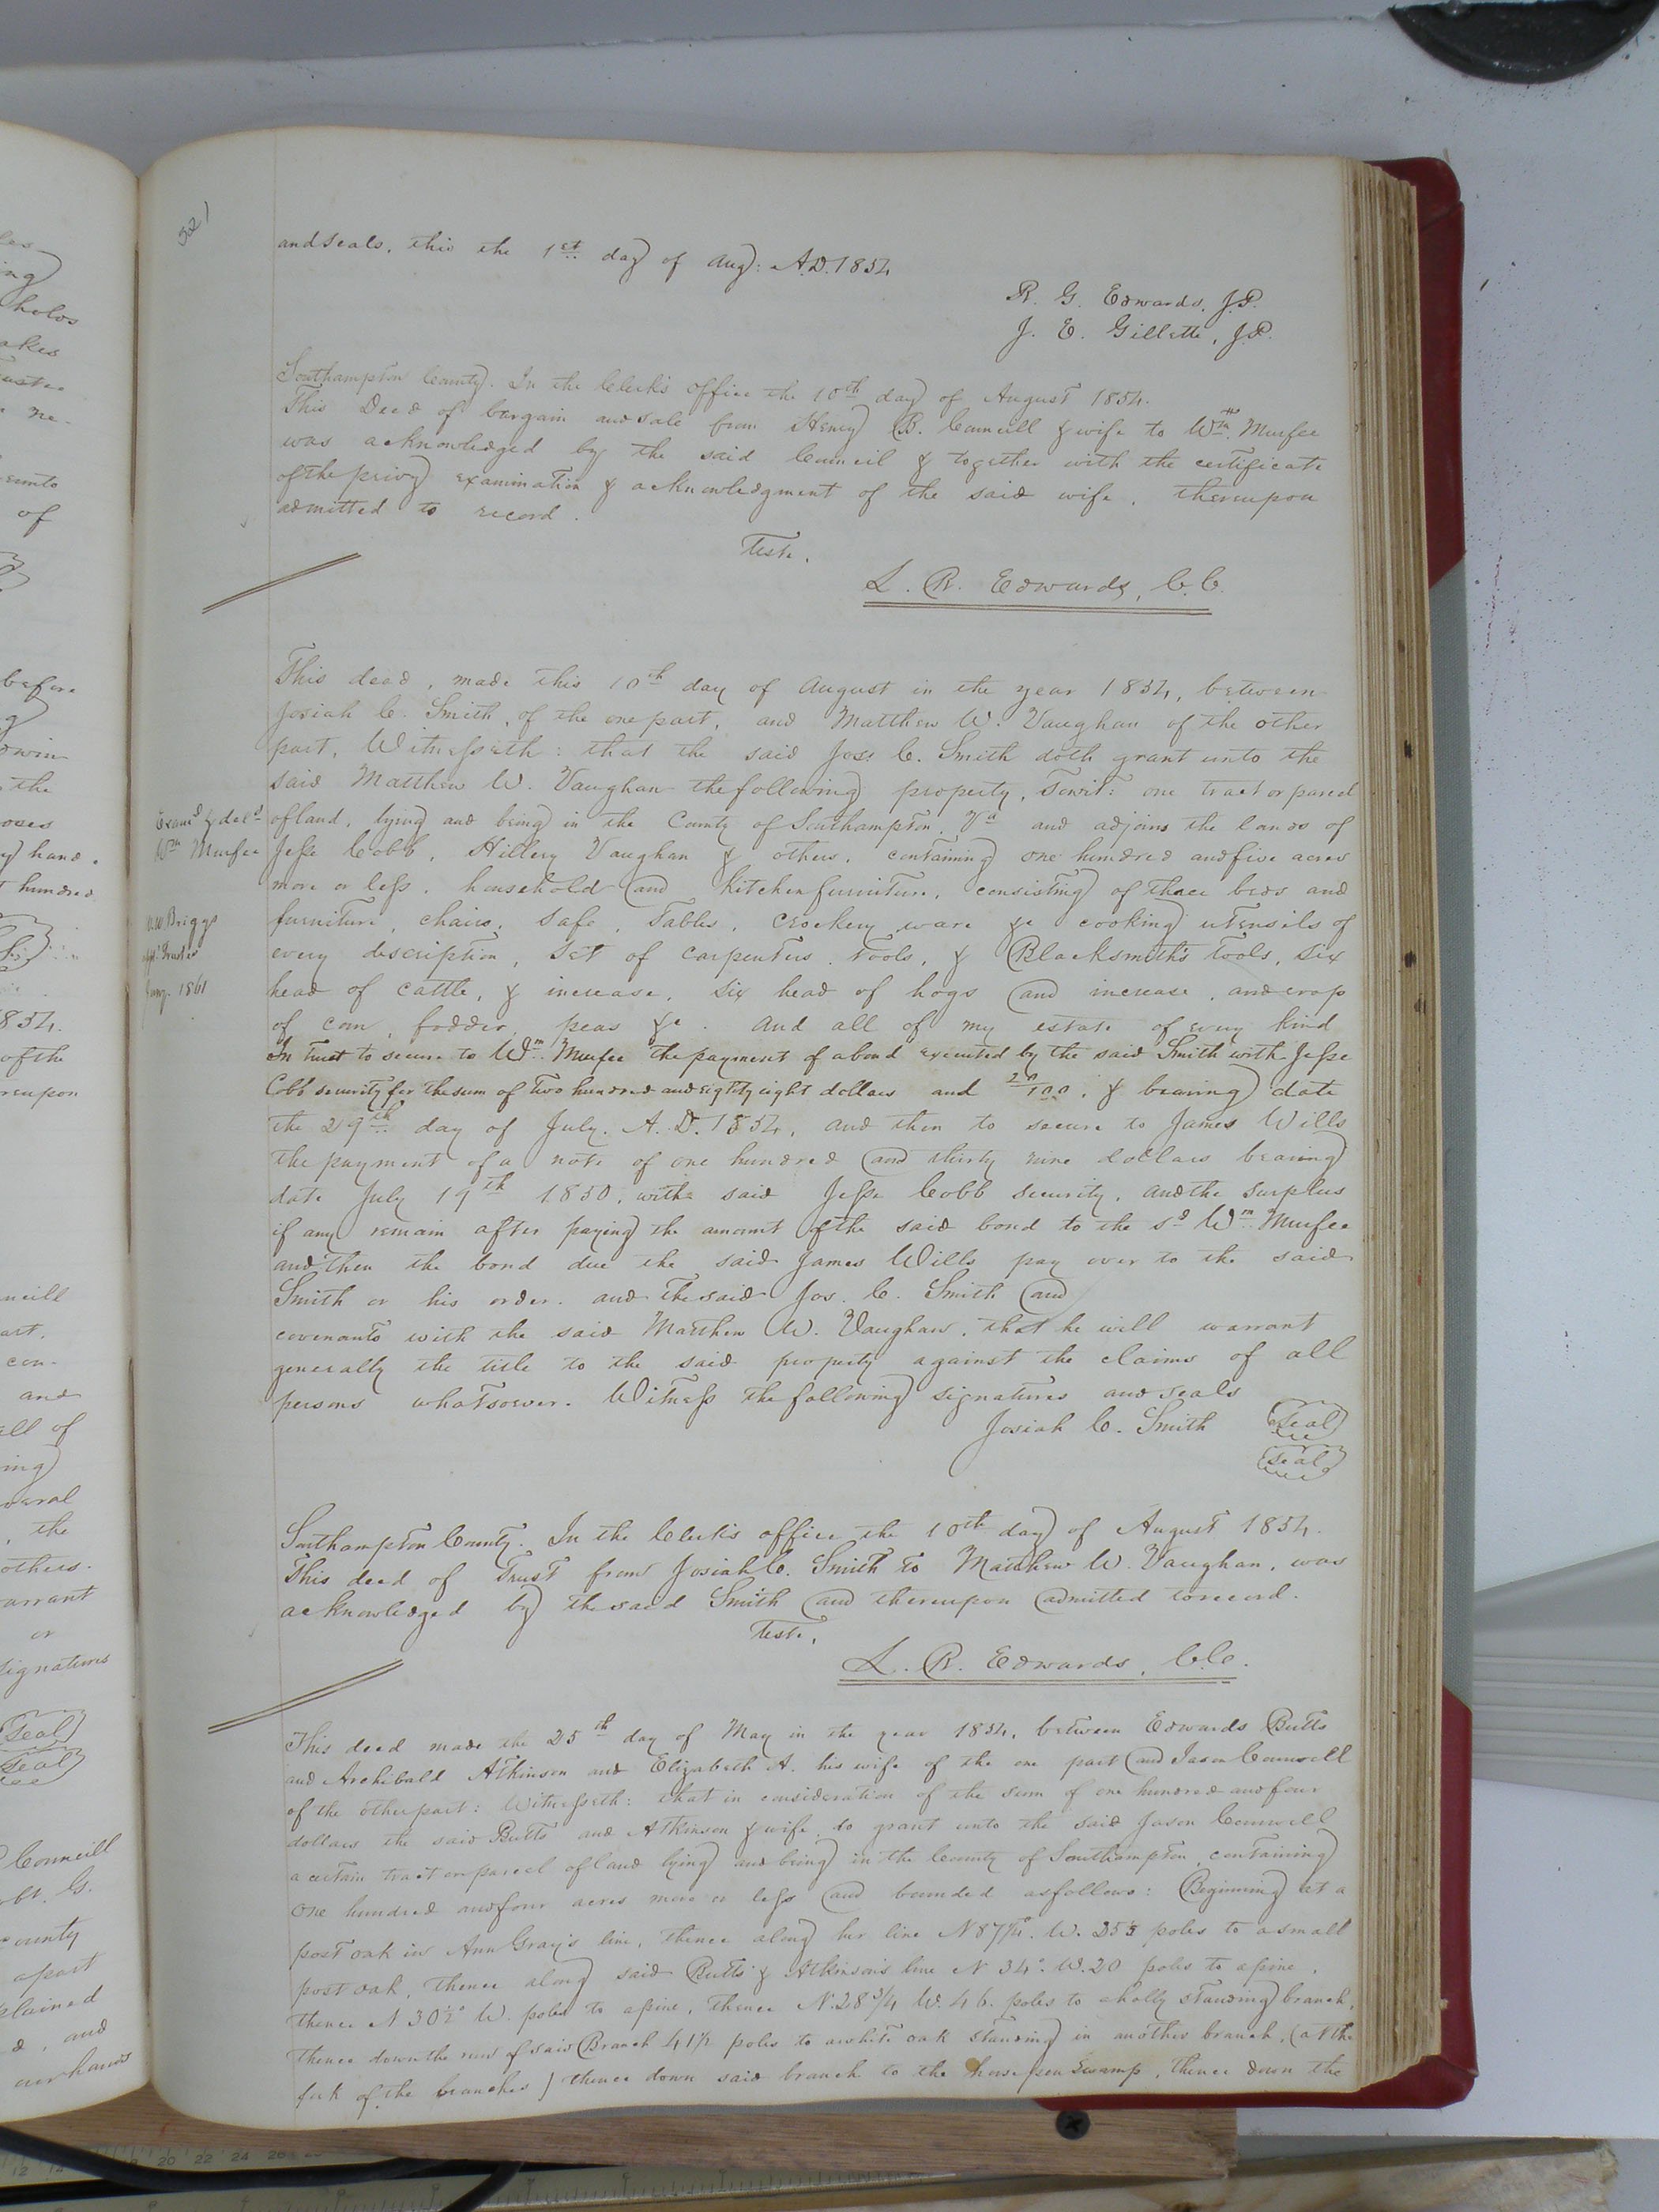 321
and seals, this the 1st day of Aug: A.D. 1854
R. G. Edwards, J.P.
J. E. Gillette, J.P.
Southampton County. In the Clerk's office the 10th day of August 1854.
This Deed of bargain and sale from Henry B. Council & wife to Wm. Murfee
was acknowledged by the said Council & together with the certificate
of the privy examination & acknowledgment of the said wife, thereupon
admitted to record.
Teste,
L. R. Edwards, C.C.
This deed, made this 10th day of August in the year 1854, between
Josiah C. Smith, of the one part, and Matthew W. Vaughan of the other
part, Witnesseth: that the said Jos: C. Smith doth grant unto the
said Matthew W. Vaughan the following property, Towit: one tract or parcel
of land, lying and being in the County of Southampton, Va and adjoins the lands of
Jesse Cobb, Hillery Vaughan & others, containing one hundred and five acres
more or less, household and kitchen furniture, consisting of three beds and
furniture, chairs, safe, tables, crockery ware &c cooking utensils of
every description, Set of carpenters tools, & Blacksmith's tools, six
head of cattle, & increase, six head of hogs and increase, and crop
of corn, fodder, peas &c. And all of my estate of every kind
In trust to secure to Wm. Murfee the payment of a bond executed by the said Smith with Jesse
Cobb security for the sum of two hundred and eighty eight dollars and 20/100, & bearing date
the 29th day of July. A.D. 1854, and then to secure to James Wills
the payment of a note of one hundred and thirty nine dollars bearing
date July 19th 1850, with said Jesse Cobb security, and the surplus
if any remain after paying the amount of the said bond to the sd Wm. Murfee
and then the bond due the said James Wills pay over to the said
Smith or his order. and the said Jos. C. Smith and
covenants with the said Matthew W. Vaughan, that he will warrant
generally the title to the said property against the claims of all
persons whatsoever. Witness the following signatures and seals
Josiah C. Smith (Seal)
(Seal)
Exam'd & del'd
Wm Murfee
Briggs
Trustee
1861
Southampton County. In the Clerk's office the 10th day of August 1854.
This deed of Trust from Josiah C. Smith to Matthew W. Vaughan, was
acknowledged by the said Smith and thereupon admitted to record.
Teste,
L. R. Edwards, C.C.
This deed made the 25th day of May in the year 1854, between Edwards Butts
and Archibald Atkinson and Elizabeth A. his wife of the one part and Jason Council
of the other part: Witnesseth: that in consideration of the sum of one hundred and four
dollars the said Butts and Atkinson & wife, do grant unto the said Jason Council
a certain tract or parcel of land lying and being in the County of Southampton, containing
one hundred and four acres more or less and bounded as follows: Beginning at a
post oak in Ann Gray's line, thence along her line N 87¼. W. poles to a small
post oak, thence along said Butts & Atkinson's line N 34°. W. 20 poles to a pine,
thence N 30½° W. poles to a pine, thence N. 28¾ W. 46 poles to a holly standing branch,
thence down the run of said Branch 41½ poles to a white oak standing in another branch, (at the
fork of the branches) thence down said branch to the horse pen Swamp, thence down the